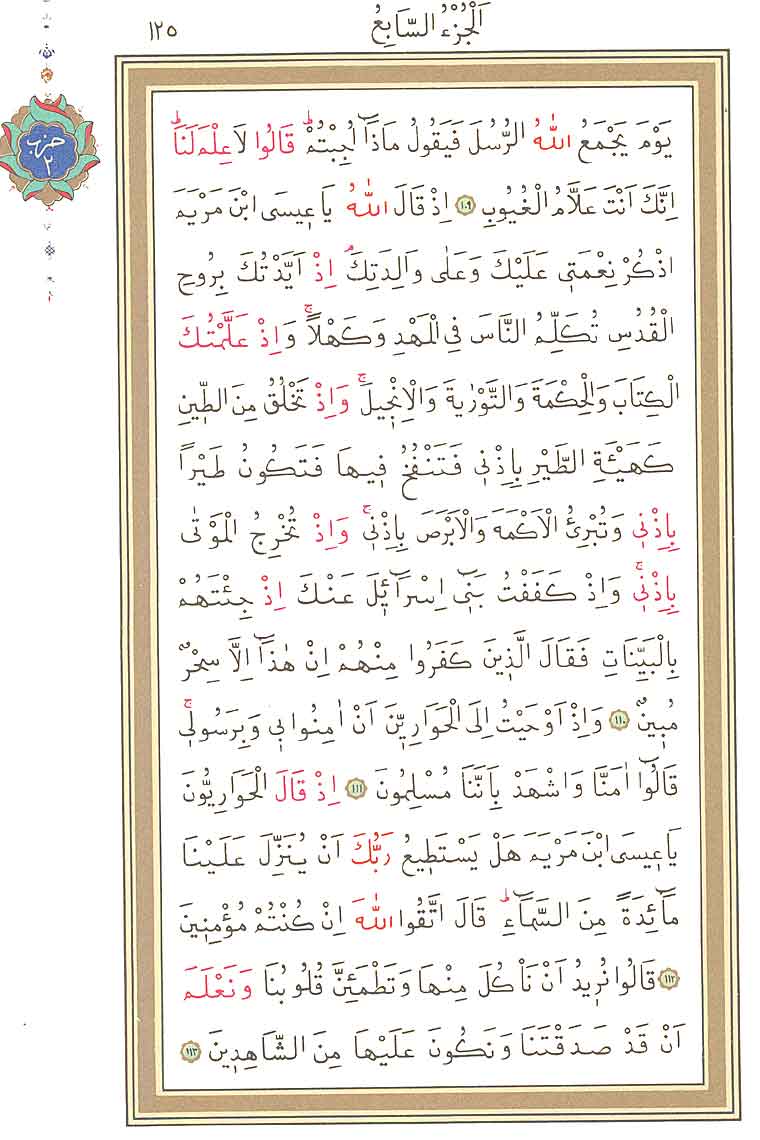 اَلْجُزْءُ السَّابِعُ
١٢٥
حزب
٢
يَوْمَ يَجْمَعُ اللّٰهُ الرُّسُلَ فَيَقُولُ مَاذَٓا اُجِبْتُمْۜ قَالُوا لَا عِلْمَ لَنَاۜ
اِنَّكَ اَنْتَ عَلَّامُ الْغُيُوبِ ١٠٩ اِذْ قَالَ اللّٰهُ يَا عٖيسَى ابْنَ مَرْيَمَ
اذْكُرْ نِعْمَتٖي عَلَيْكَ وَعَلٰى وَالِدَتِكَۘ اِذْ اَيَّدْتُكَ بِرُوحِ
الْقُدُسِ تُكَلِّمُ النَّاسَ فِي الْمَهْدِ وَكَهْلاًۚ وَاِذْ عَلَّمْتُكَ
الْكِتَابَ وَالْحِكْمَةَ وَالتَّوْرٰيةَ وَالْاِنْجٖيلَۚ وَاِذْ تَخْلُقُ مِنَ الطّٖينِ
كَهَيْـَٔةِ الطَّيْرِ بِاِذْنٖي فَتَنْفُخُ فٖيهَا فَتَكُونُ طَيْراً
بِاِذْنٖي وَتُبْرِئُ الْاَكْمَهَ وَالْاَبْرَصَ بِاِذْنٖيۚ وَاِذْ تُخْرِجُ الْمَوْتٰى
بِاِذْنٖيۚ وَاِذْ كَفَفْتُ بَنٖٓي اِسْرَٓائٖلَ عَنْكَ اِذْ جِئْتَهُمْ
بِالْبَيِّنَاتِ فَقَالَ الَّذٖينَ كَفَرُوا مِنْهُمْ اِنْ هٰذَٓا اِلَّا سِحْرٌ
مُبٖينٌ ١١٠ وَاِذْ اَوْحَيْتُ اِلَى الْحَوَارِيّٖنَ اَنْ اٰمِنُوا بٖي وَبِرَسُولٖيۚ
قَالُٓوا اٰمَنَّا وَاشْهَدْ بِاَنَّنَا مُسْلِمُونَ ١١١ اِذْ قَالَ الْحَوَارِيُّونَ
يَا عٖيسَى ابْنَ مَرْيَمَ هَلْ يَسْتَطٖيعُ رَبُّكَ اَنْ يُنَزِّلَ عَلَيْنَا
مَٓائِدَةً مِنَ السَّمَٓاءِۜ قَالَ اتَّقُوا اللّٰهَ اِنْ كُنْتُمْ مُؤْمِنٖينَ
١١٢ قَالُوا نُرٖيدُ اَنْ نَأْكُلَ مِنْهَا وَتَطْمَئِنَّ قُلُوبُنَا وَنَعْلَمَ
اَنْ قَدْ صَدَقْتَنَا وَنَكُونَ عَلَيْهَا مِنَ الشَّاهِدٖينَ ١١٣